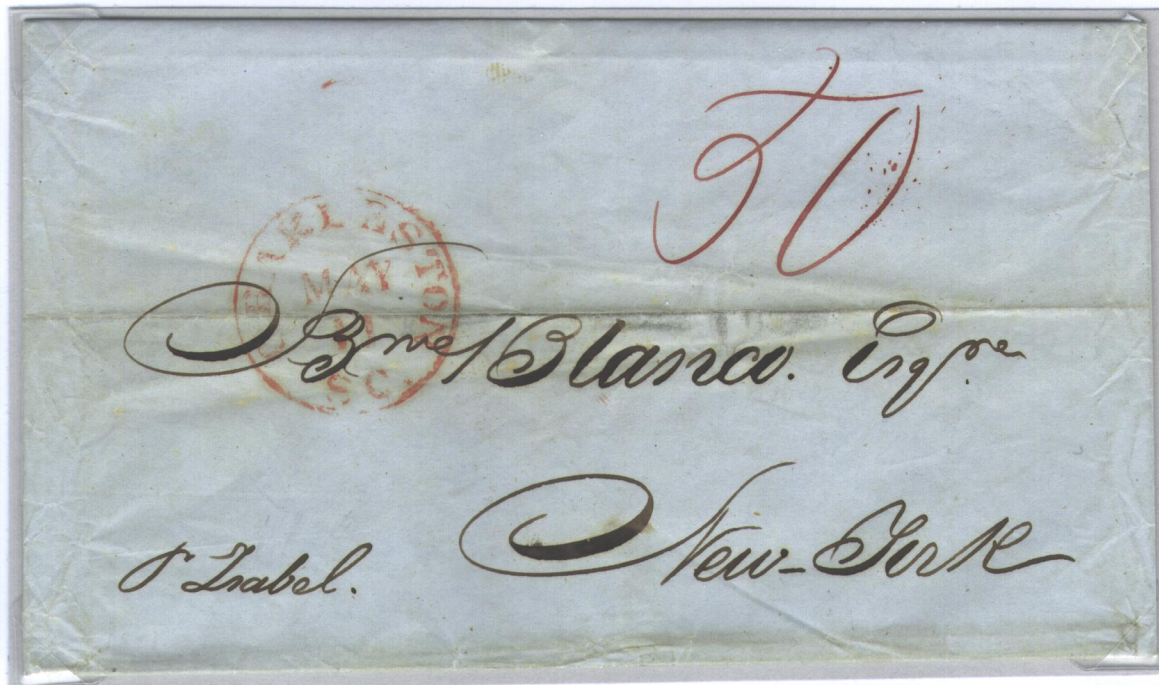 50
CHARLESTON
MAY
S.C.
Bme Blanco. Esqre.
New-York
pr Isabel.